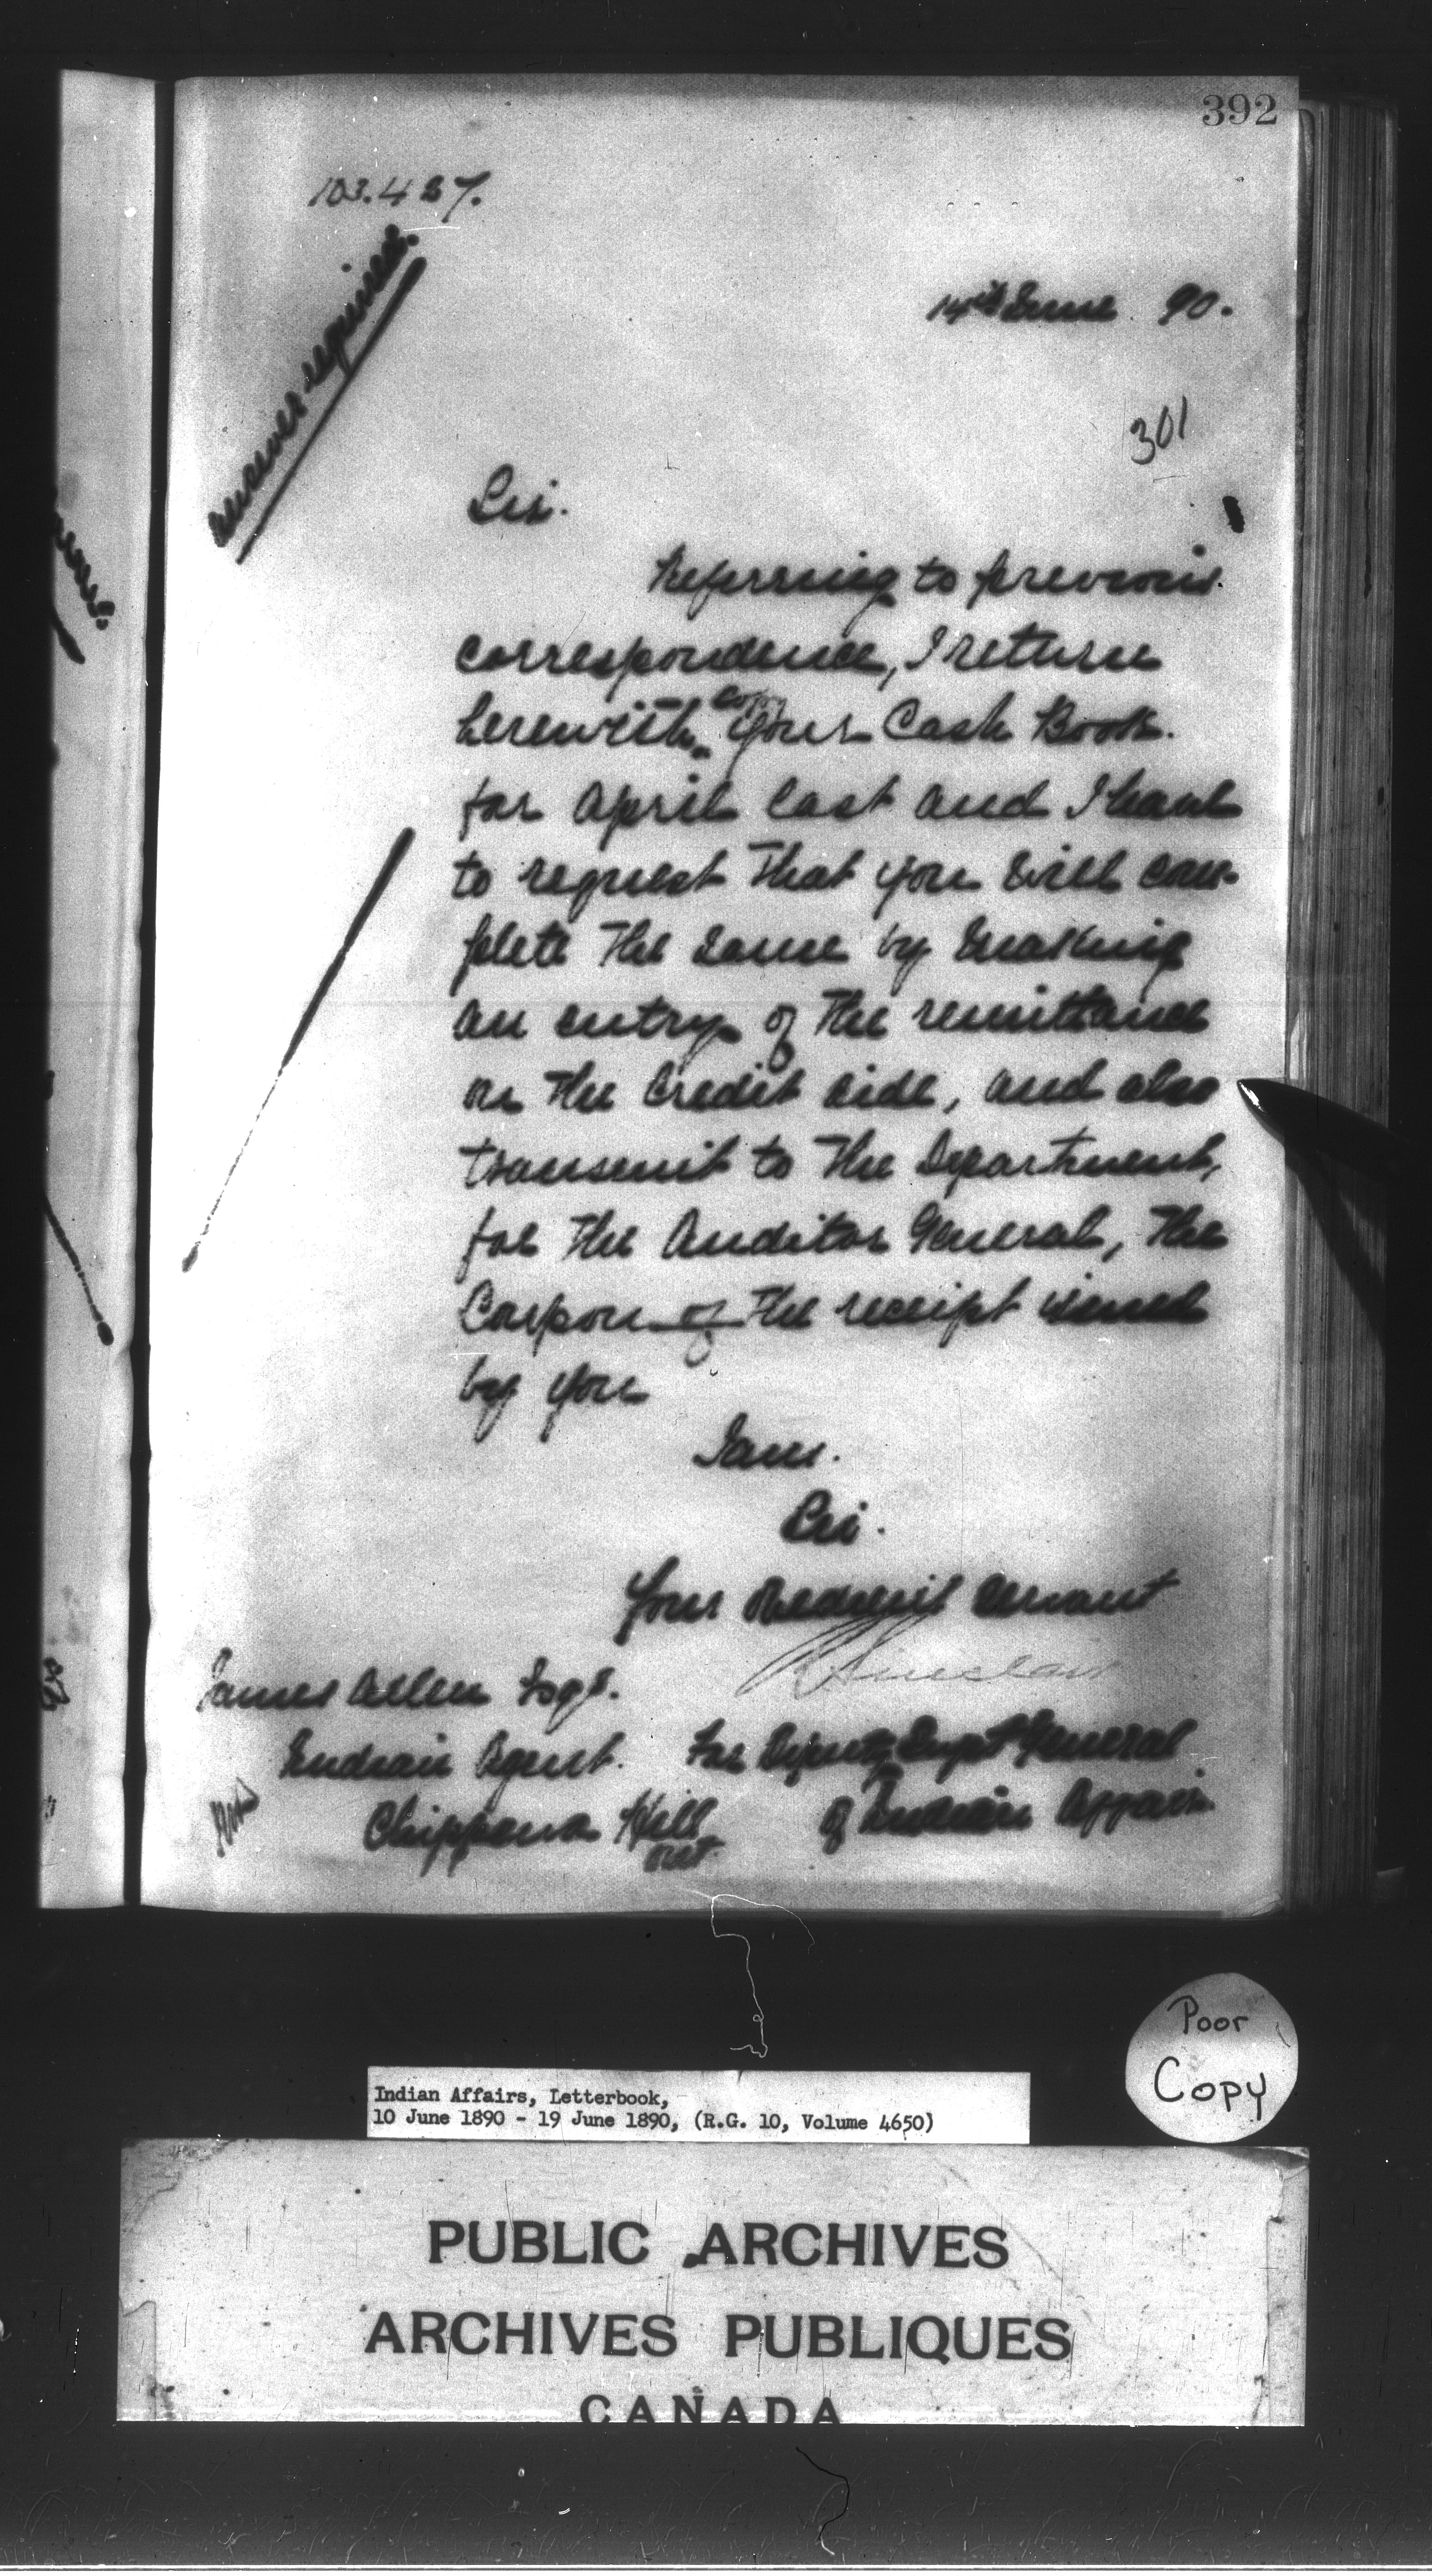 392
103.427.
answer required.
14th June 90.
301
Sir.
Referring to previous
correspondence, I return
herewith copy your Cash Book
for April last and I have
to request that you will com-
plete the same by making
an entry of the remittance
on the Credit side, and also
transmit to the Department,
for the Auditor General, the
Coupon of the receipt issued
by you
I am.
Sir.
Your obedient servant
R Sinclair
James Allen Esqr.
Indian Agent.
for Deputy Supt General
Chippewa Hill
of Indian Affairs.
Ont.
Poor
Copy
Indian Affairs, Letterbook,
10 June 1890 - 19 June 1890, (R.G. 10, Volume 4650)
PUBLIC ARCHIVES
ARCHIVES PUBLIQUES
CANADA